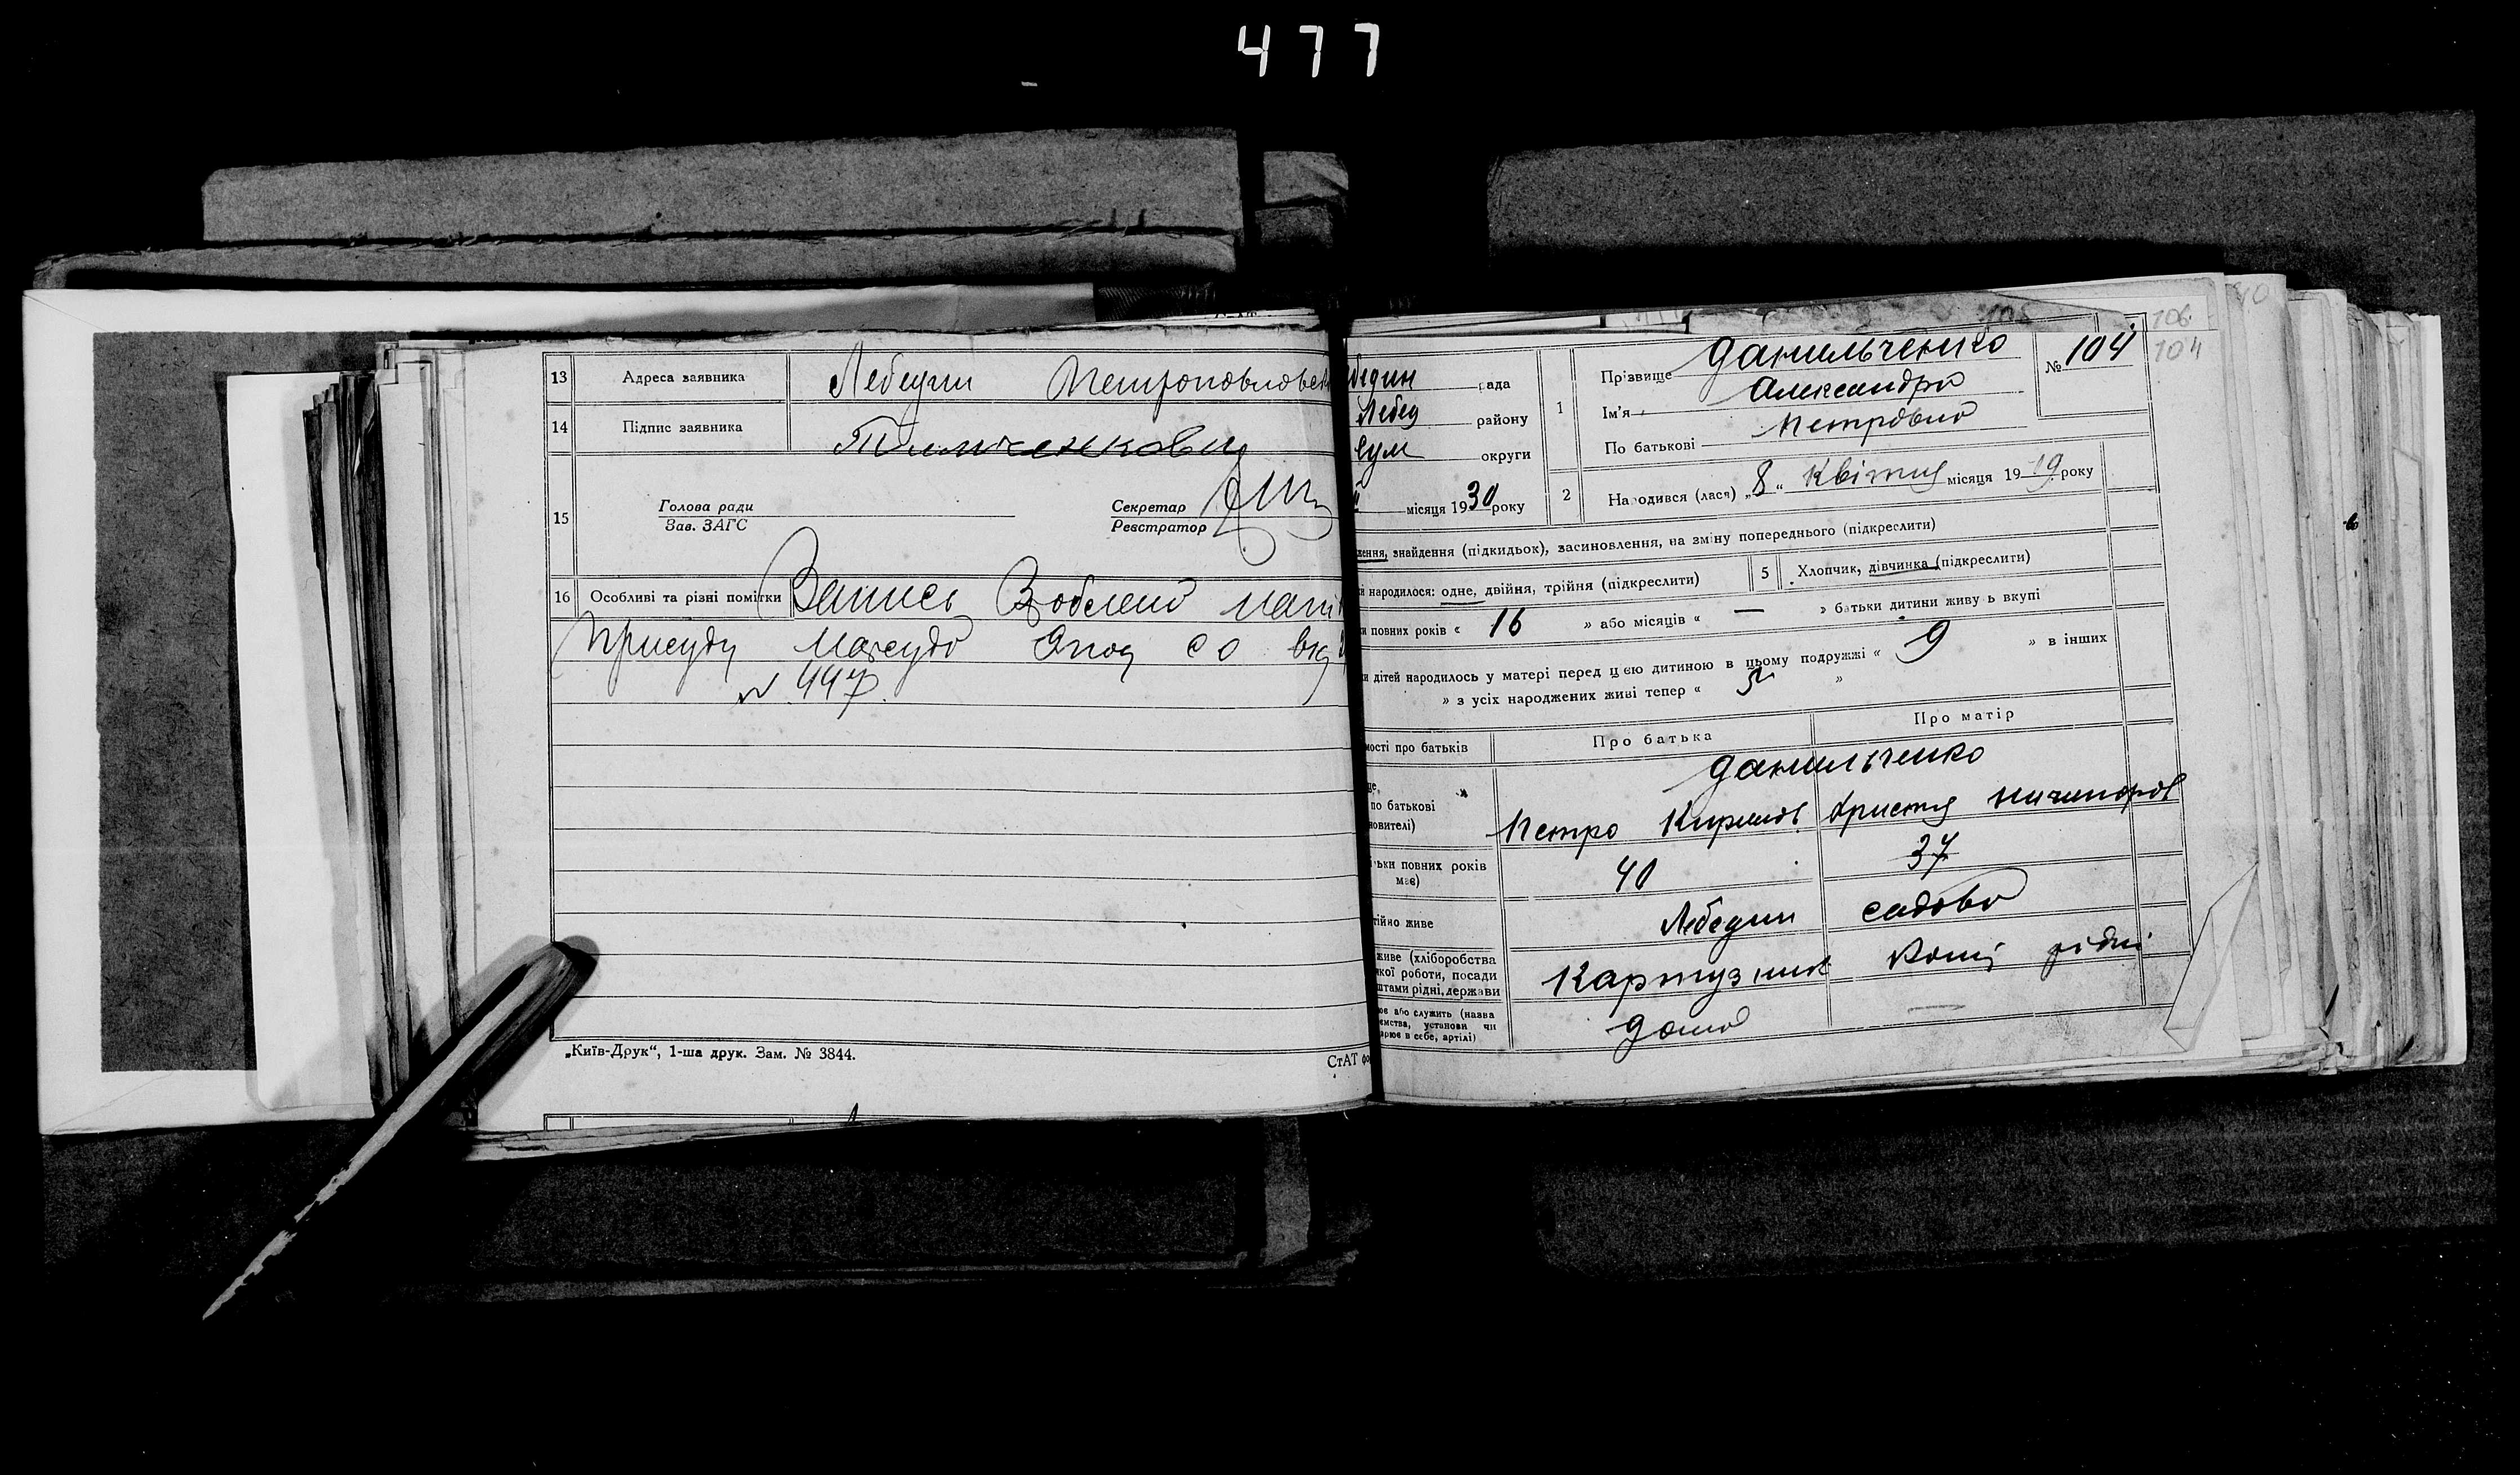 477
13 Адреса заявника Лебедин Петроповловськ
14 Підпис заявника Тимченкова
15 Голова ради
Зав. ЗАГС
Секретар
Реєстратор
16 Особливі та різні помітки Запись Зроблено
присуду Нарсуду
№ 447
„Київ-Друк“, 1-ша друк. Зам. № 3844.
СтАТ фо
106
104
бедин рада
Лебед району
Сум округи
місяця 1930 року
1 Прізвище Данильченко
Ім'я Александра
По батькові Петровна
№ 104
2 Народився (лася) „8“ Квітня місяця 1919 року
ження, знайдення (підкидьок), засиновлення, на зміну попереднього (підкреслити)
и народилося: одне, двійня, трійня (підкреслити)
5 Хлопчик, дівчинка (підкреслити)
ки повних років « 16 » або місяців « — » батьки дитини живуть вкупі
и дітей народилось у матері перед цією дитиною в цьому подружжі « 9 » в інших
» з усіх народжених живі тепер « 5 »
мості про батьків Про батька Про матір
Данильченко
по батькові
новителі)
Петро Кирилов Христя Ничипоров
ьки повних років має) 40 37
тійно живе Лебедин садова
живе (хліборобства
якої роботи, посади
штами рідні, держави
Картузник Кошт рідні
ює або служить (назва
ємства, установи чи
арює в себе, артілі)
дома —